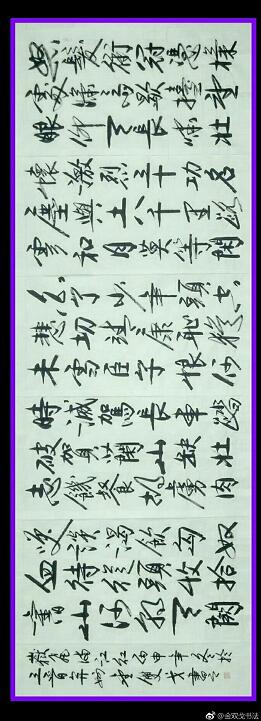 怒髮衝冠憑欄
處瀟〻雨歇擡望
眼仰天長嘯壯
懷激烈三十功名
塵與土八千里路
雲和月莫等閑
白了少年頭空
悲切靖康恥猶
未雪臣子恨何
時滅駕長車踏
破賀蘭山缺壯
志饑餐胡虜肉
笑談渴飲匈奴
血待從頭收拾
舊山河朝天闕
岳飛滿江紅丙申年冬於
@金双戈书法